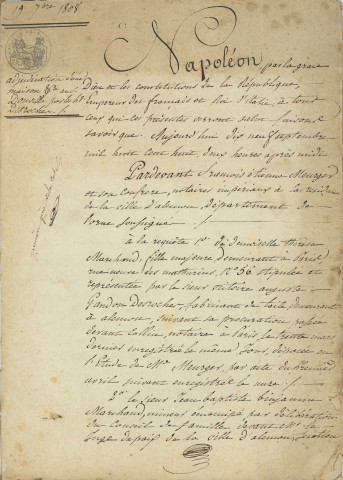 19 7bre 1808
adjudication d'une
maison
Napoléon par la grace
Dieu et les constitutions de la République,
Empereur des français et Roi d'Italie, à tous
ceux qui ces présentes verront salut faisons
savoir que Aujourd'hui dix neuf septembre
mil huit cent huit, deux heures après midi
Pardevant François étienne Meurger
et son confrere, notaires impériaux à la résidence
de la ville d'alençon, département de
l'orne soussignés
à la requête 1° de demoiselle thérèse
Marchand, fille majeure demeurant à Paris
rue neuve des mathurins, n° 36 stipulée et
représentée par le sieur victoire auguste
Gandon Desroches fabricant de toile demeurant
à alençon, suivant sa procuration passée
devant notaire à Paris, le trente mars
dernier enregistrée le même jour, déposée en
l'étude de Me Meurger, par acte du premier
avril suivant enregistré le
2° le sieur Jean baptiste benjamin
Marchand, mineur émancipé par délibération
du Conseil de famille devant Mr le
Juge de paix de la ville d'alençon,